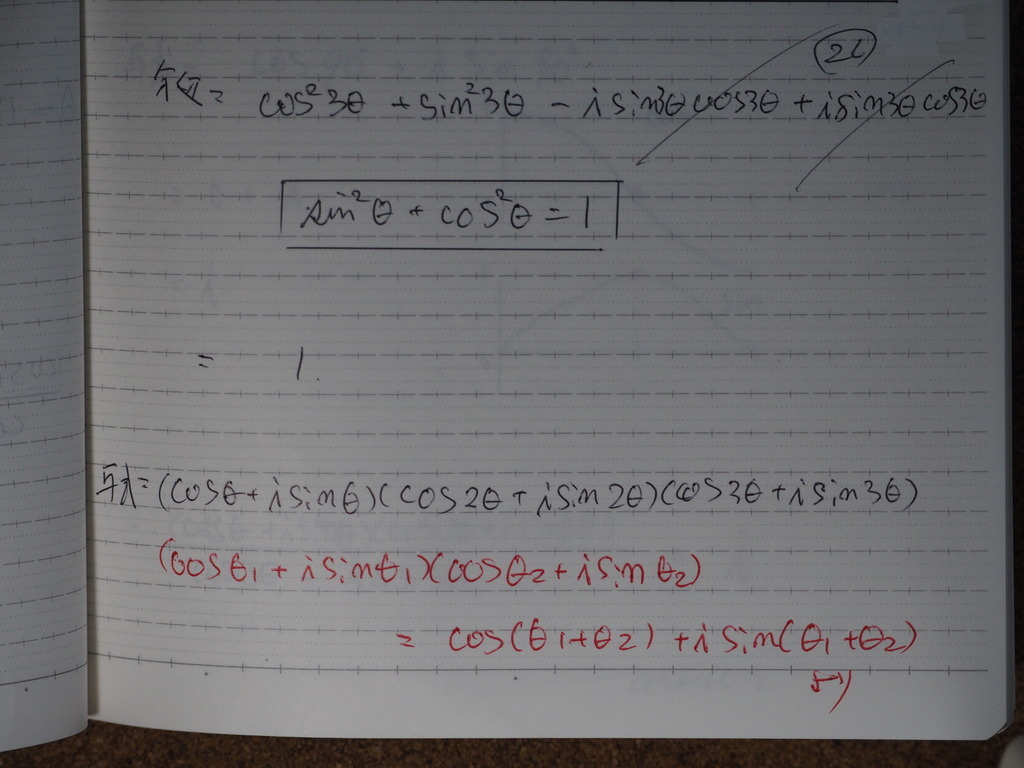 26
与式 = cos²3θ + sin²3θ - i sin3θ cos3θ + i sin3θ cos3θ
sin²θ + cos²θ = 1
= 1.
与式 = (cosθ + i sinθ)(cos2θ + i sin2θ)(cos3θ + i sin3θ)
(cosθ₁ + i sinθ₁)(cosθ₂ + i sinθ₂)
= cos(θ₁+θ₂) + i sin(θ₁+θ₂)
より